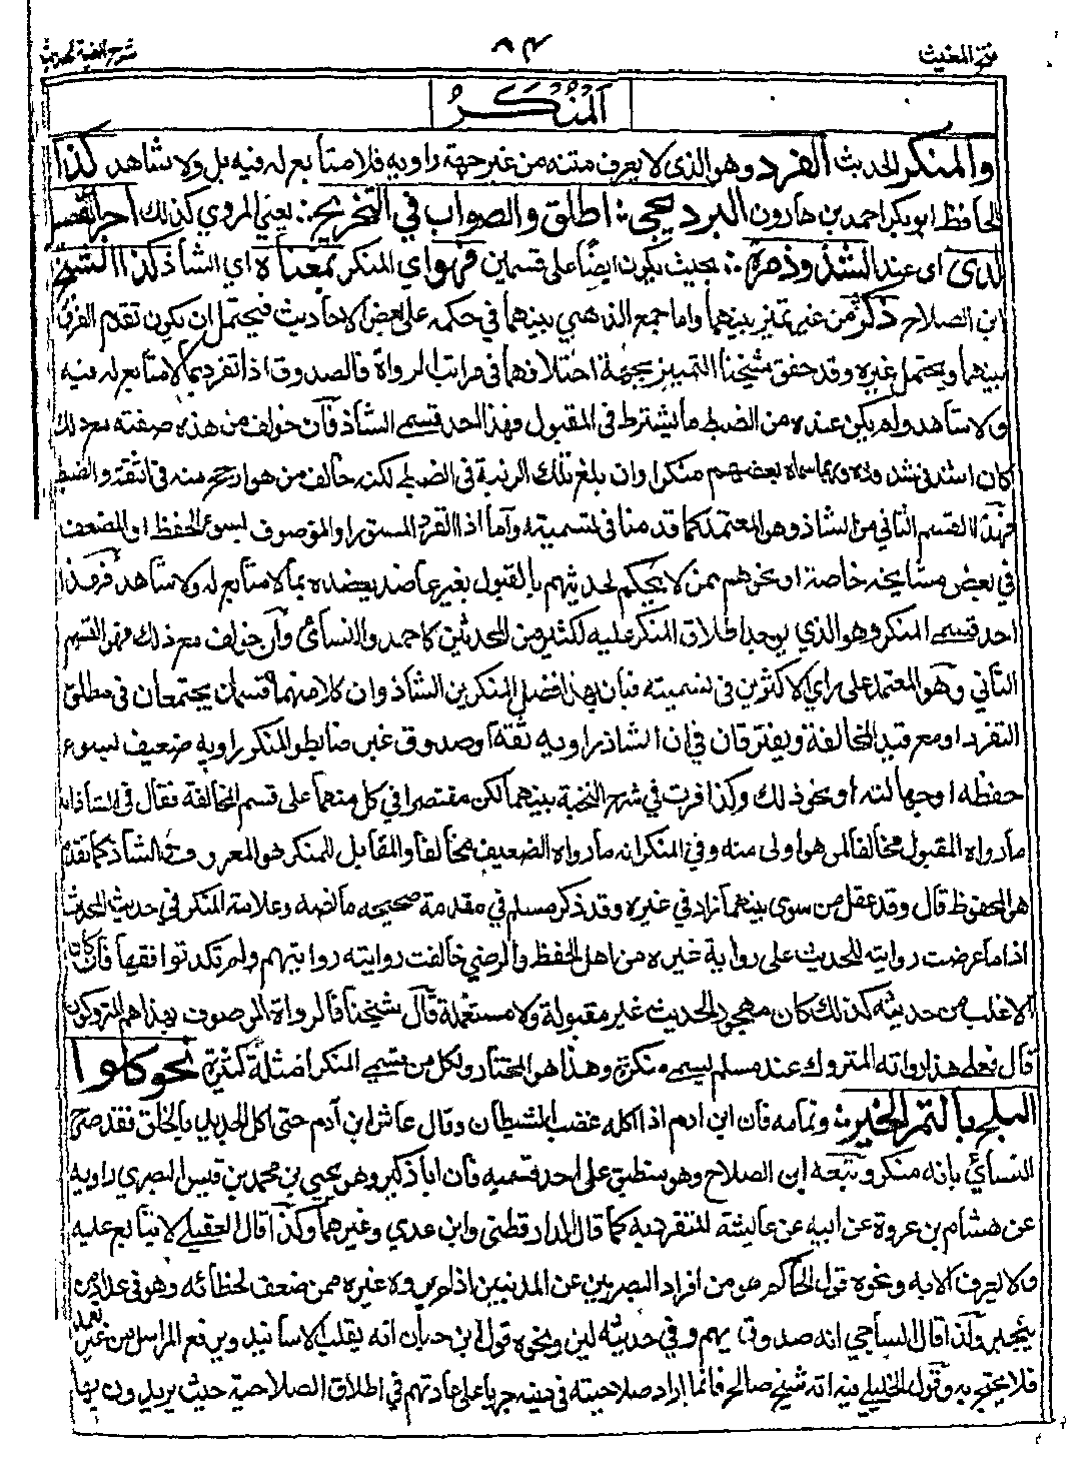 فتح المغيث
٨٤
شرح الفية الحديث
المُنْكَرُ
والمنكر الحديث الفرد وهو الذي لا يعرف متنه من غير جهة راويه فلا متابع له فيه بل ولا شاهد كذا
الحافظ ابو بكر احمد بن هارون البرديجي ؛ اطلق والصواب في التخريج ؛ يعني المروي كذلك اجر تفصيل
لدى اى عند الشذوذ مر ؛ بحيث يكون ايضا على قسمين فهو اي المنكر بمعناه اي الشاذ كذا الشيخ
ابن الصلاح ذكر من غير تمييز بينهما واما جمع الذهبي بينهما في حكمه على بعض الاحاديث فيحتمل ان يكون لعدم الفرق
بينهما ويحتمل غيره وقد حقق شيخنا التمييز بجهة اختلافهما في مراتب الرواة فالصدوق اذا تفرد بما لا متابع له فيه
ولا شاهد ولم يكن عنده من الضبط ما يشترط في المقبول فهذا احد قسمي الشاذ فان خولف من هذه صفته مع ذلك
كان اشد في شذوذه وربما سماه بعضهم منكرا وان بلغ تلك الرتبة في الضبط لكنه خالف من هو ارجح منه في الثقة والضبط
فهذا القسم الثاني من الشاذ وهو المعتمد كما قدمنا في تسميته واما اذا انفرد المستور او الموصوف بسوء الحفظ او المضعف
في بعض مشايخه خاصة او نحوهم ممن لا يحكم لحديثهم بالقبول بغير عاضد يعضده بما لا متابع له ولا شاهد فهذا
احد قسمي المنكر وهو الذي يوجد اطلاق المنكر عليه لكثير من المحدثين كاحمد والنسائ وان خولف مع ذلك فهو القسم
الثاني وهو المعتمد على راي الاكثرين في تسميته فبان بهذا فصل المنكر من الشاذ وان كلا منهما قسمان يجتمعان في مطلق
التفرد او مع قيد المخالفة ويفترقان في ان الشاذ راويه ثقة او صدوق غير ضابط والمنكر راويه ضعيف لسوء
حفظه او جهالته او نحو ذلك وكذا فرق في شرح النخبة بينهما لكن مقتصرا في كل منهما على قسم المخالفة فقال في الشاذ انه
ما رواه المقبول مخالفا لمن هو اولى منه وفي المنكر انه ما رواه الضعيف مخالفا والمقابل للمنكر هو المعروف والشاذ كما تقدم
هو المحفوظ قال وقد غفل من سوى بينهما زاد في غيره وقد ذكر مسلم في مقدمة صحيحه ما نصه وعلامة المنكر في حديث المحدث
اذا ما عرضت روايته للحديث على رواية غيره من اهل الحفظ والرضي خالفت روايته روايتهم ولم تكد توافقها فان كان
الاغلب من حديثه كذلك كان مهجور الحديث غير مقبولة ولا مستعملة قال شيخنا فالرواة الموصوف بهذا هم المتروكون
قال فعلى هذا رواية المتروك عند مسلم تسمى منكرة وهذا هو المختار ولكل من قسمي المنكر امثلة كثيرة نحو كلوا
البلح بالتمر الخبر ؛ وتمامه فان ابن ادم اذا اكله غضب الشيطان وقال عاش ابن آدم حتى اكل الجديد بالخلق فقد صرح
النسائي بانه منكر وتبعه ابن الصلاح وهو منطبق على احد قسميه فان ابا زكير وهو يحيى بن محمد بن قيس البصري راويه
عن هشام بن عروة عن ابيه عن عايشة تفرد به كما قال الدارقطني وابن عدي وغيرهما وكذا قال العقيلي لا يتابع عليه
ولا يعرف الا به ونحوه قول الحاكم هو من افراد البصريين عن المدنيين اذ لم يروه غيره ممن ضعف لخطائه وهو في عداد من
ينجبر ولذا قال الساجي انه صدوق يهم وفي حديثه لين ونحوه قول ابن حبان انه يقلب الاسانيد ويرفع المراسيل من غير تعمد
فلا يحتج به وقول الخليلي فيه انه شيخ صالح فانما اراد صلاحيته في دينه جريا على عادتهم في اطلاق الصلاحية حيث يريدون بها